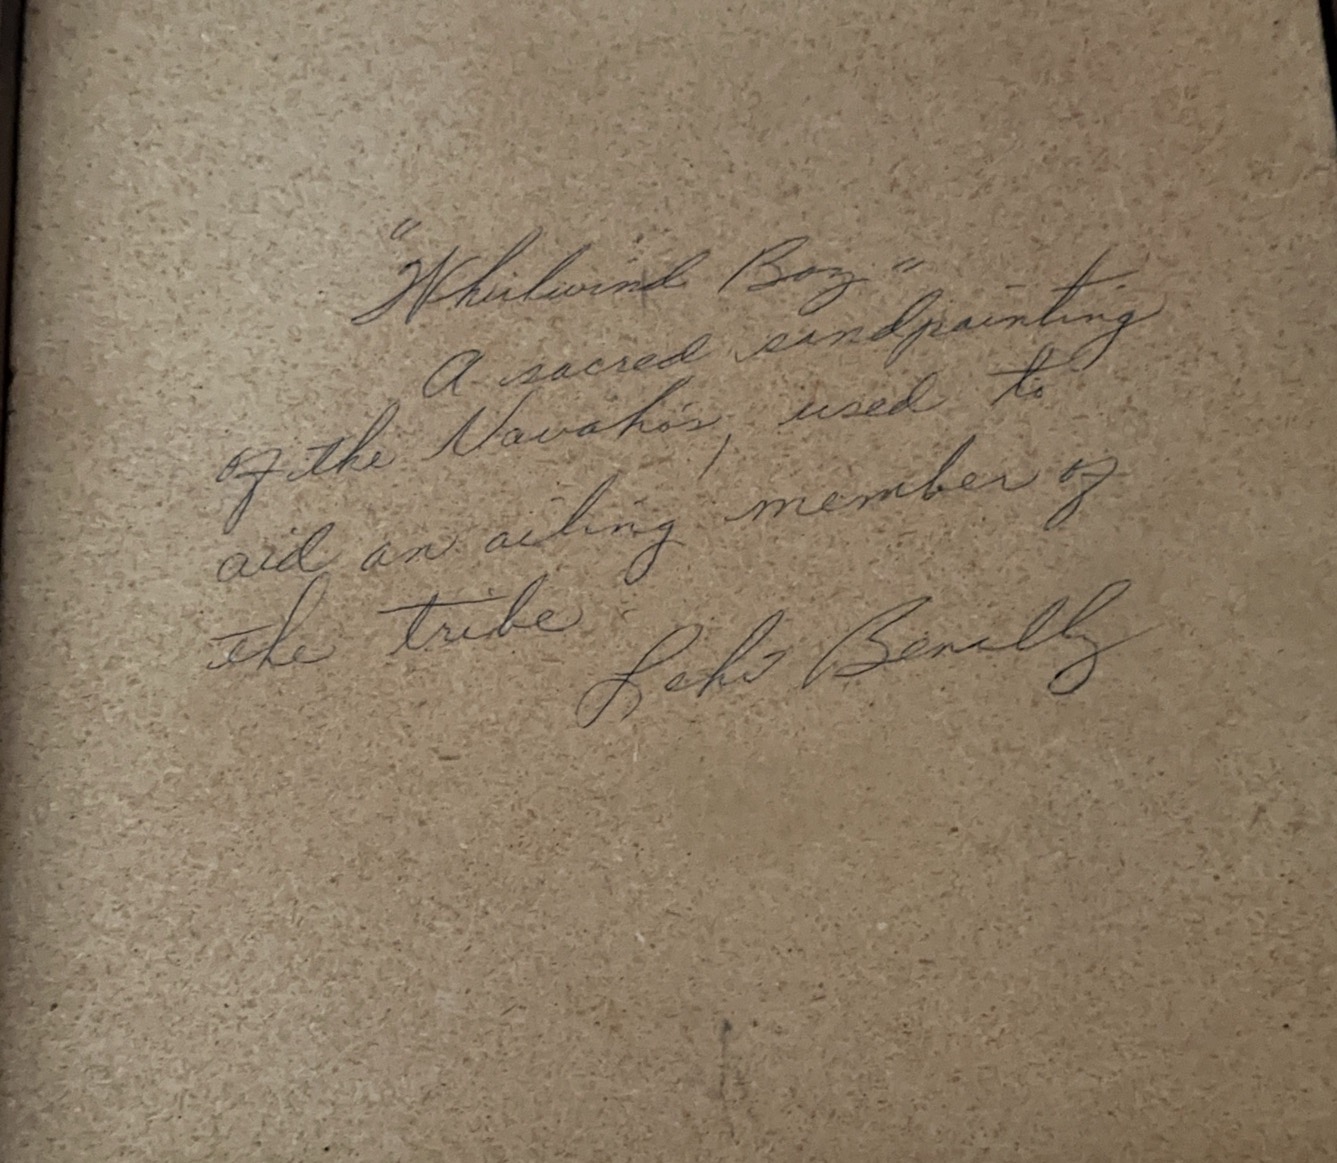 "Whirlwind Boy"
A sacred sandpainting
of the Navaho's, used to
aid an ailing member of
the tribe
Benally